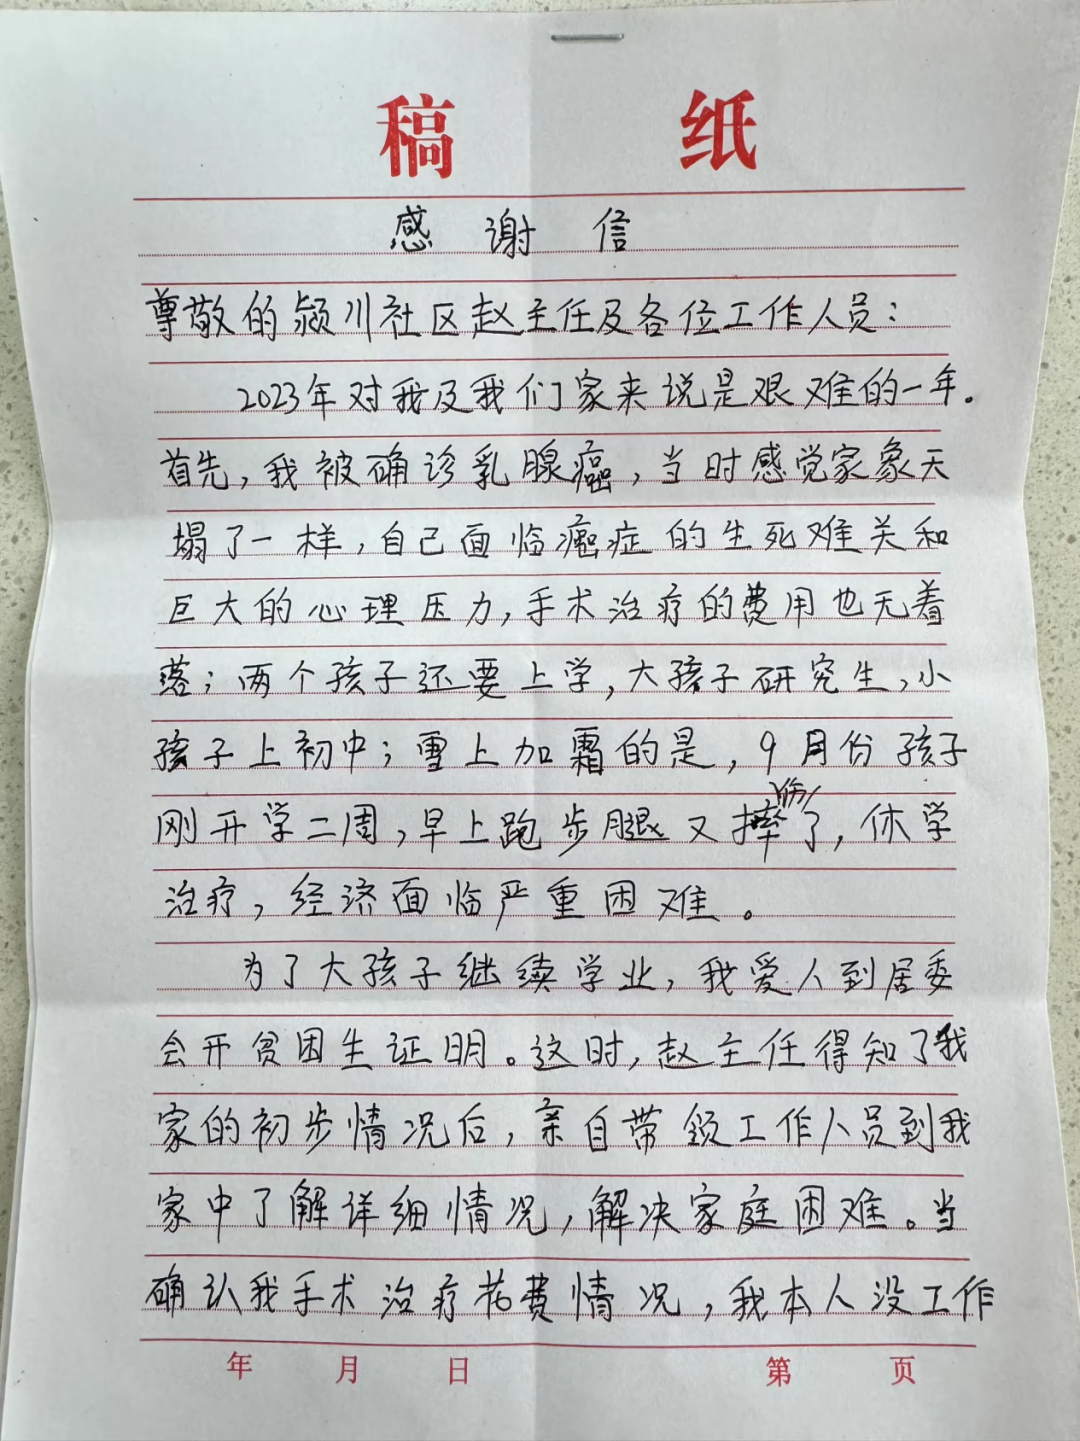 稿 纸
感 谢 信
尊敬的颍川社区赵主任及各位工作人员：
2023年对我及我们家来说是艰难的一年。
首先，我被确诊乳腺癌，当时感觉家象天
塌了一样，自己面临癌症的生死难关和
巨大的心理压力，手术治疗的费用也无着
落；两个孩子还要上学，大孩子研究生，小
孩子上初中；雪上加霜的是，9月份孩子
刚开学二周，早上跑步腿又摔伤了，休学
治疗，经济面临严重困难。
为了大孩子继续学业，我爱人到居委
会开贫困生证明。这时，赵主任得知了我
家的初步情况后，亲自带领工作人员到我
家中了解详细情况，解决家庭困难。当
确认我手术治疗花费情况，我本人没工作
年 月 日 第 页